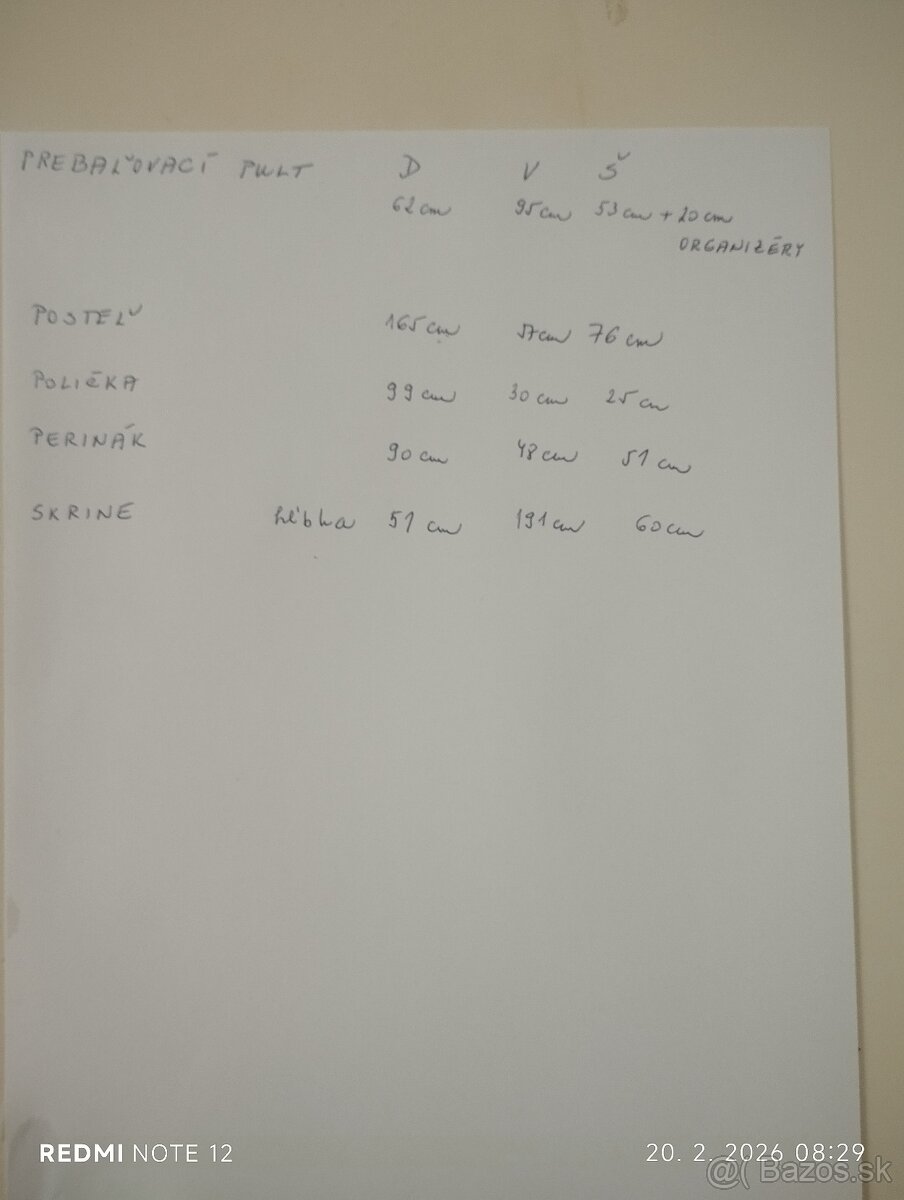 PREBAĽOVACÍ PULT D V Š
62 cm 95 cm 53 cm + 20 cm
ORGANIZÉRY
POSTEĽ 165 cm 57 cm 76 cm
POLIČKA 99 cm 30 cm 25 cm
PERINÁK 90 cm 48 cm 51 cm
SKRINE hĺbka 51 cm 191 cm 60 cm
REDMI NOTE 12 20. 2. 2026 08:29
Bazos.sk